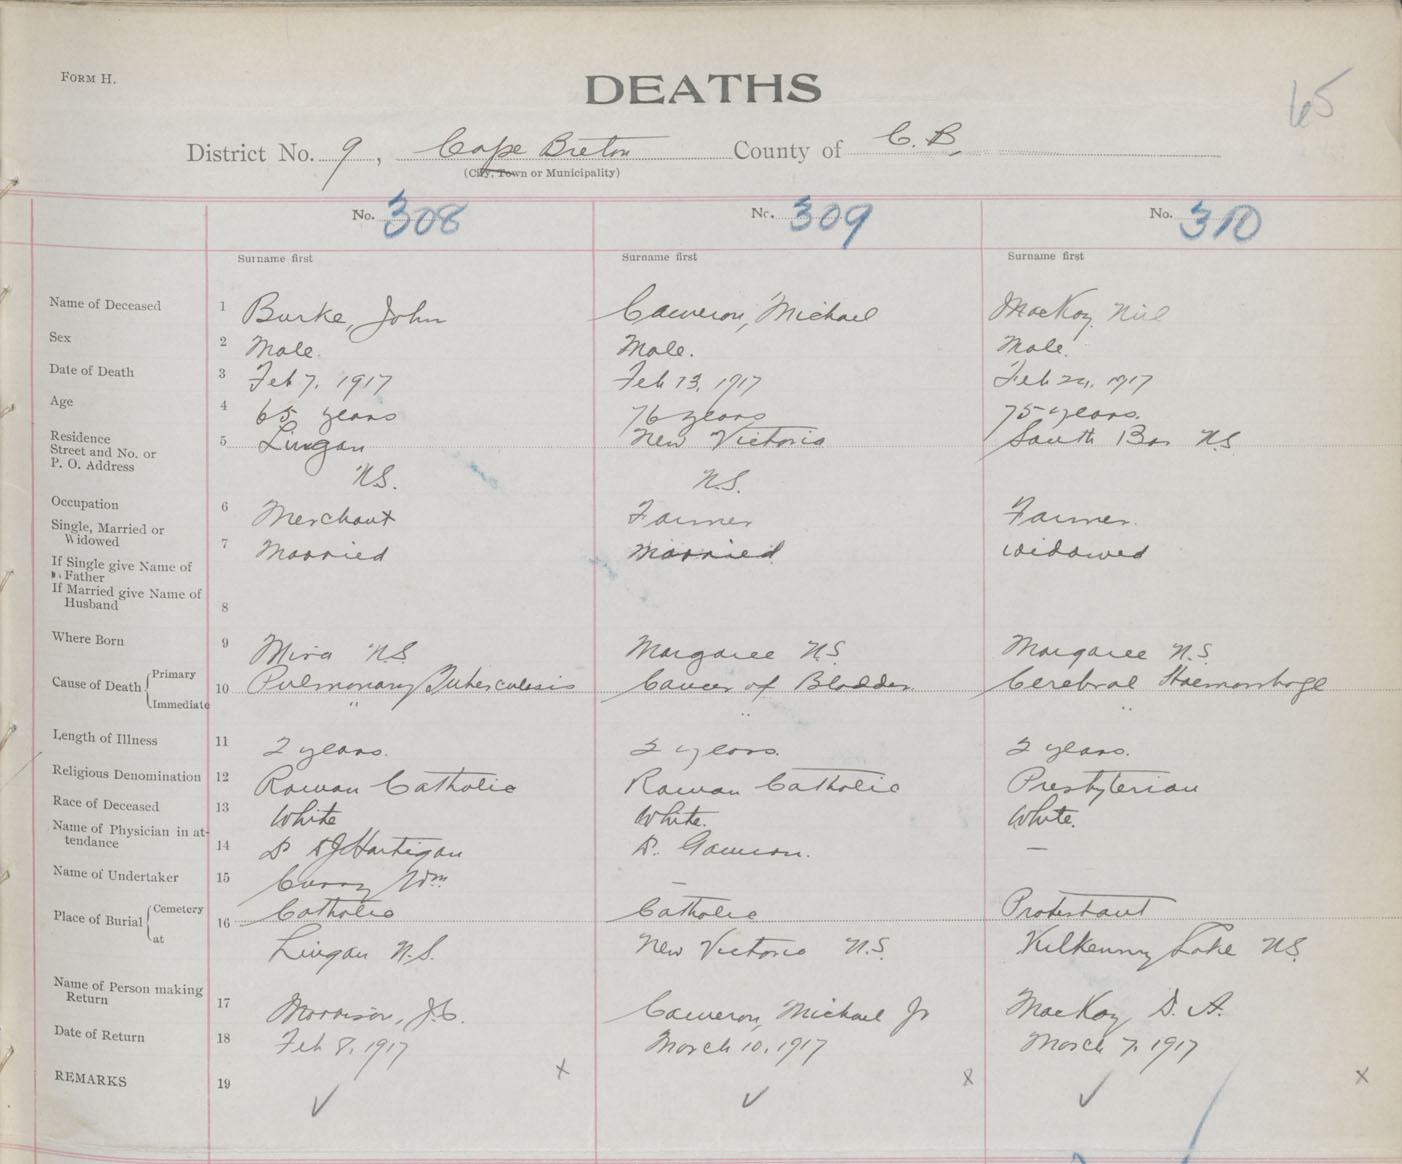 FORM H.
DEATHS
65
District No. 9, Cape Breton County of C. B.
(City, Town or Municipality)
No. 308 No. 309 No. 310
Surname first Surname first Surname first
Name of Deceased 1 Burke, John Cameron, Michael MacKay, Niel
Sex 2 Male. Male. Male.
Date of Death 3 Feb 7, 1917 Feb 13, 1917 Feb 24, 1917
Age 4 65 years 76 years 75 years.
Residence
Street and No. or
P. O. Address
5 Lingan New Victoria South Bar N.S.
N.S. N.S.
Occupation 6 Merchant Farmer Farmer.
Single, Married or
Widowed
7 Married Married. Widowed
If Single give Name of
Father
If Married give Name of
Husband
8
Where Born 9 Mira N.S. Margaree N.S. Margaree N.S.
Cause of Death Primary 10 Pulmonary Tuberculosis Cancer of Bladder. Cerebral Haemorrhage
Immediate " " "
Length of Illness 11 2 years. 2 years. 2 years.
Religious Denomination 12 Roman Catholic Roman Catholic Presbyterian
Race of Deceased 13 White White. White.
Name of Physician in at-
tendance
14 D DJ Hartigan D. —
Name of Undertaker 15 Curry Wm —
Place of Burial Cemetery 16 Catholic Catholic Protestant
at Lingan N.S. New Victoria N.S. Kilkenny Lake N.S.
Name of Person making
Return
17 Morrison, J.C. Cameron, Michael Jr MacKay D. A.
Date of Return 18 Feb 8, 1917 March 10, 1917 March 7, 1917
REMARKS 19 x x x
✓ ✓ ✓